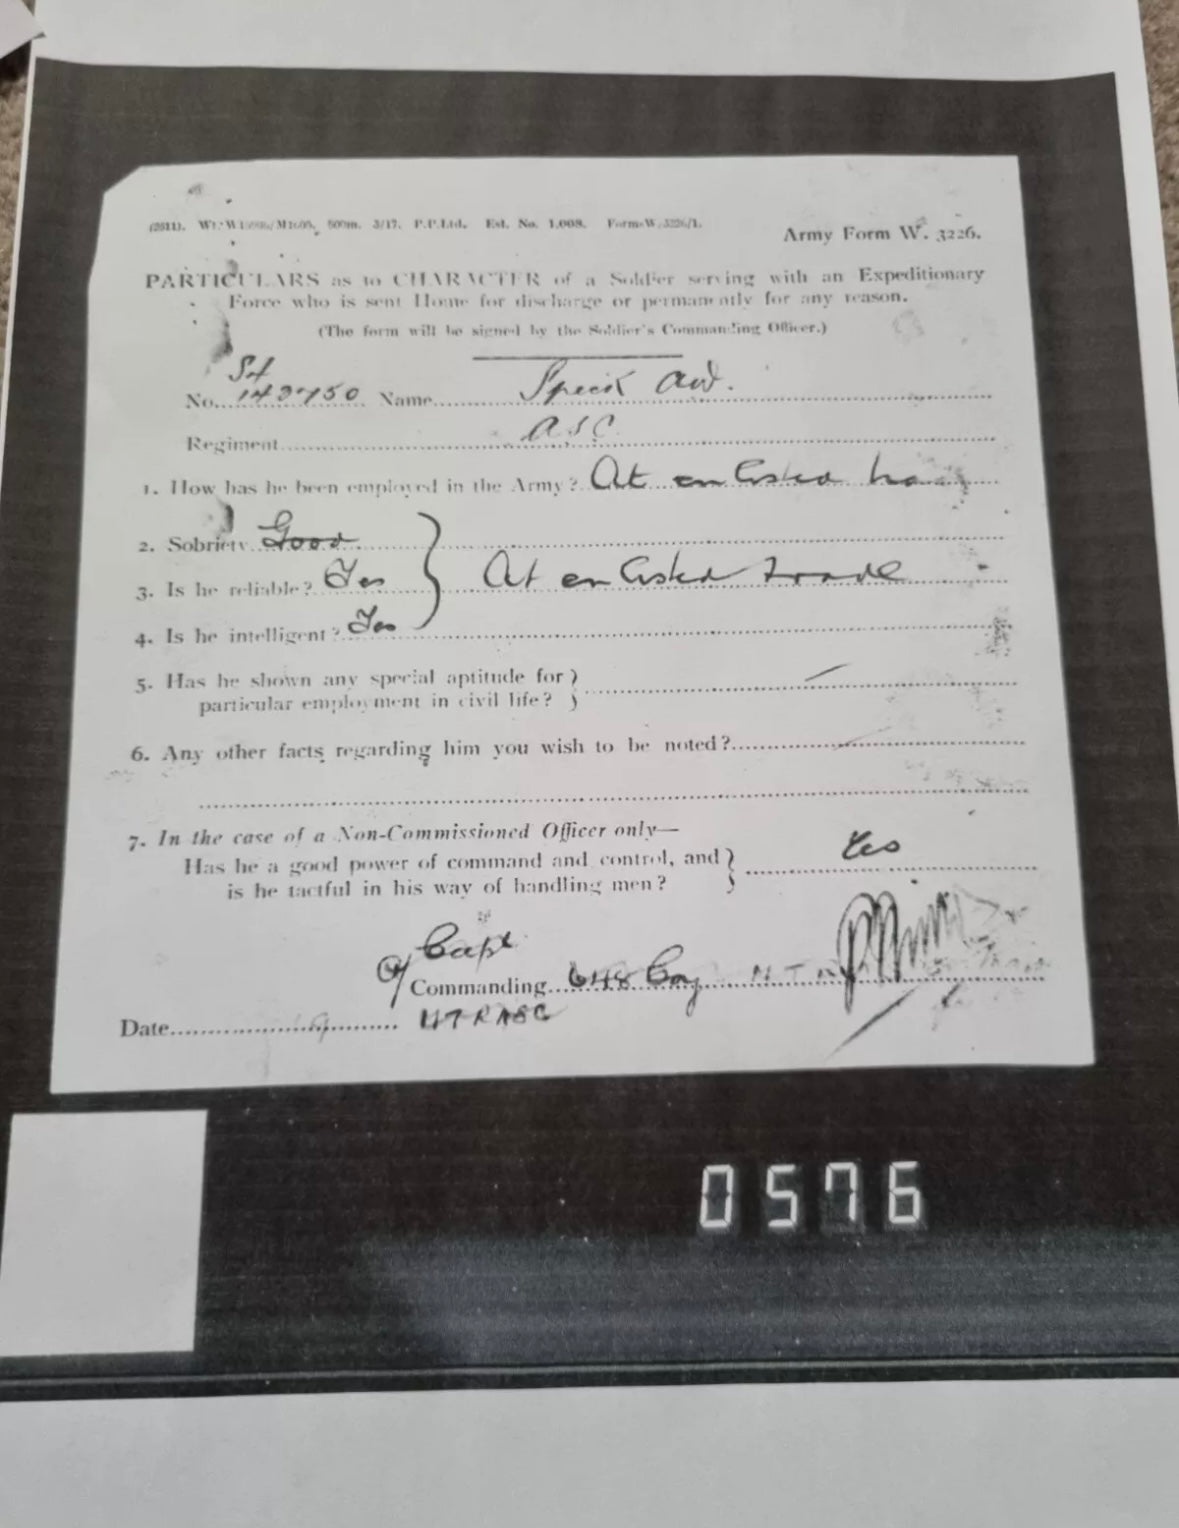 500m. 3/17. P.P.Ltd. Est. No. 1,008. Form—W.3226/1.
Army Form W. 3226.
PARTICULARS as to CHARACTER of a Soldier serving with an Expeditionary
Force who is sent Home for discharge or permanently for any reason.
(The form will be signed by the Soldier's Commanding Officer.)
No. Name Speck
Regiment ASC
1. How has he been employed in the Army? At enlisted
2. Sobriety Good
3. Is he reliable? Yes At enlisted trade
4. Is he intelligent? Yes
5. Has he shown any special aptitude for
particular employment in civil life?
6. Any other facts regarding him you wish to be noted?
7. In the case of a Non-Commissioned Officer only—
Has he a good power of command and control, and
is he tactful in his way of handling men? Yes
Capt
Commanding 648 Coy
Date MTRASC
0576